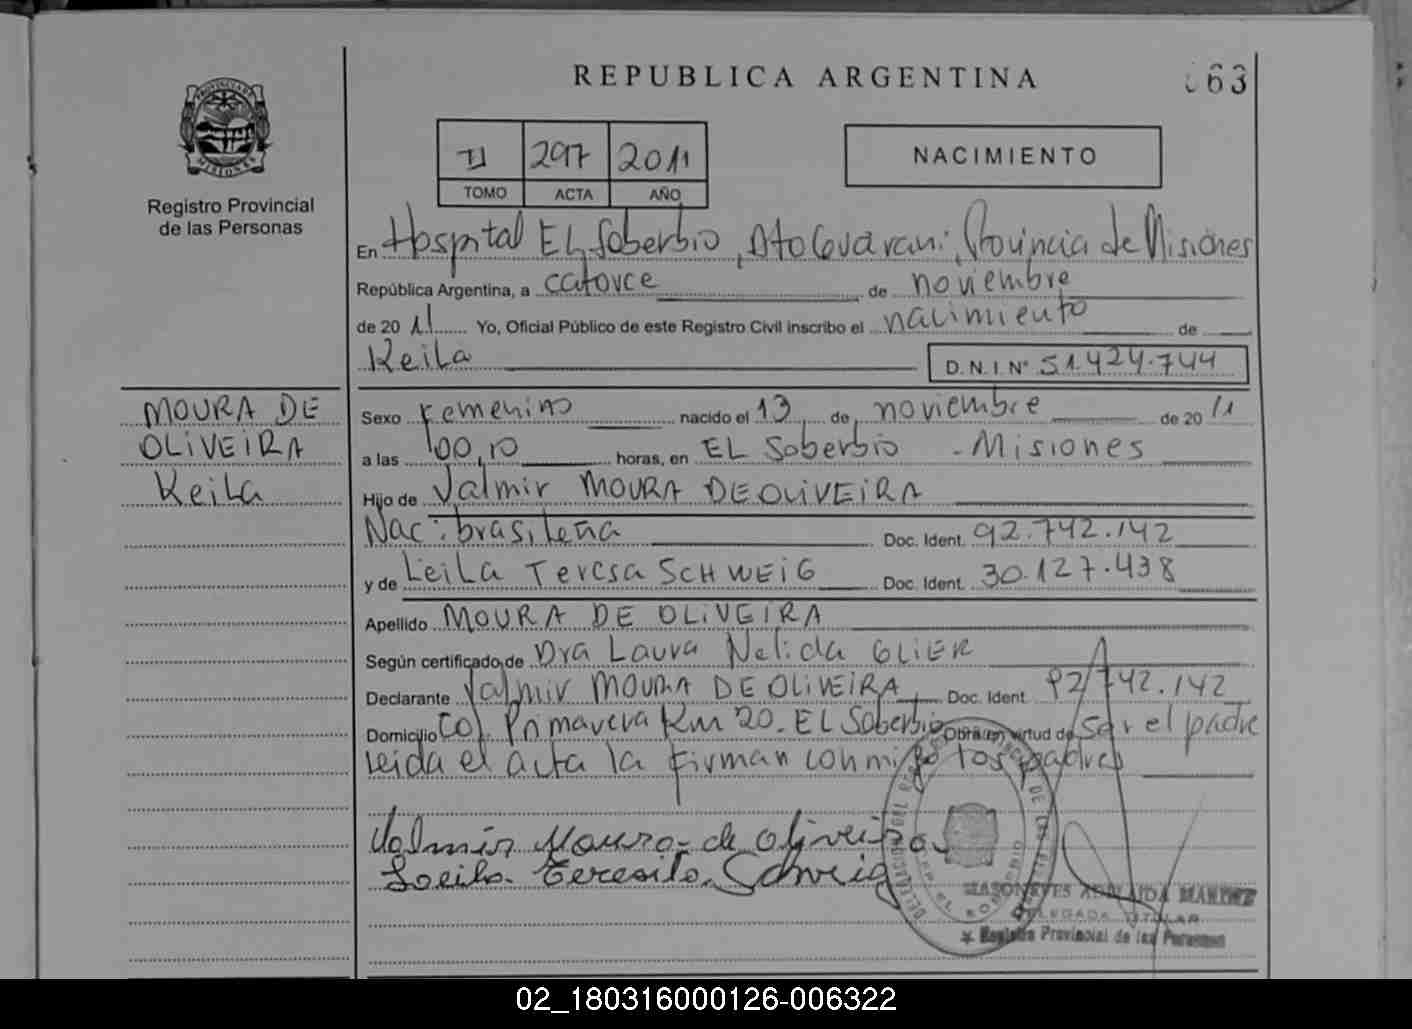 REPUBLICA ARGENTINA
63
PROVINCIA DE
MISIONES
Registro Provincial
de las Personas
II 297 2011
TOMO ACTA AÑO
NACIMIENTO
En Hospital EL Soberbio, Dto Guarani, Provincia de Misiones
República Argentina, a catorce de noviembre
de 20 11 Yo, Oficial Público de este Registro Civil inscribo el nacimiento de
Keila D.N.I. Nº 51.424.744
MOURA DE
OLIVEIRA
Keila
Sexo Femenino nacido el 13 de noviembre de 20 11
a las 00,10 horas, en EL Soberbio - Misiones
Hijo de Valmir MOURA DE OLIVEIRA
Nac: brasileña Doc. Ident. 92.742.142
y de Leila Teresa SCHWEIG Doc. Ident. 30.127.438
Apellido MOURA DE OLIVEIRA
Según certificado de Dra Laura Nelida GLIER
Declarante Valmir MOURA DE OLIVEIRA Doc. Ident. 92.742.142
Domicilio Col. Primavera Km 20. EL Soberbio Obra en virtud de ser el padre
leida el acta la firman conmigo los padres
Valmir Moura de oliveira
Leila Teresita Schweig
DELEGADA TITULAR
Registro Provincial de las Personas
02_180316000126-006322